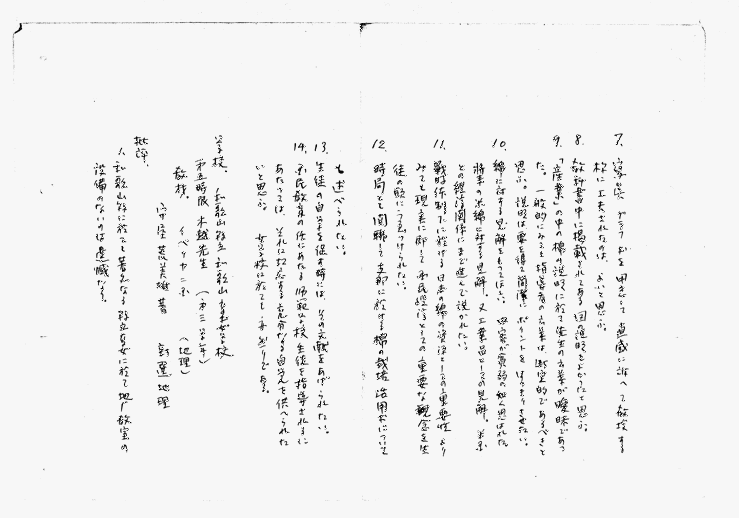 7. 写真、グラフなどを用意して直感に訴へて教授する
様に工夫されたならば、よいと思ふ。
8. 教科書中に掲載されてある図の説明をよかつたと思ふ。
9. 「産業」の中の棉の説明に於て先生の言葉が曖昧であつ
た。一般的にみて指導者の言葉は断定的であるべきと
思ふ。説明は要を得て簡潔に ポイントをはつきりさせたい。
10. 綿に対する見解をもつてほしい。内容が貧弱の如く思はれた。
将来の米綿に対する見解、又工業品としての見解、米系
との経済関係にまで進んで説かれたい。
11. 戦時体制下に於ける日本の綿の資源としての重要性より
みても現実に即して国民経済としての重要な観念を生
徒の脳にうゑつけられたい。
12. 時局とも関聯して支那に於ける棉の栽培 活用などについて
も述べられたい。
13. 生徒の自学を促す時には、その文献をあげられたい。
14. 国民教育の任にあたる師範学校生徒を指導されるに
あたつては、それに対応する充分なる自学を供へられた
いと思ふ。女学校に於ても 同じである。
学校、和歌山県立和歌山高等女学校
第五時限 木越先生 (第三学年)
教材、イベリヤ (地理)
著 新選地理
批評、
1. 和歌山県に於て著名なる県立高女に於て地歴教室の
設備のないのは遺憾なる。